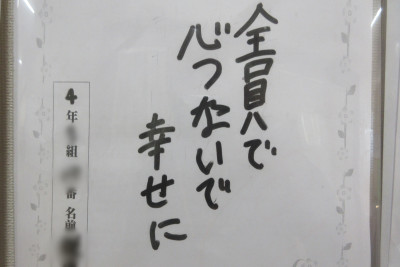 全員で
心つないで
幸せに
4年 組 番 名前